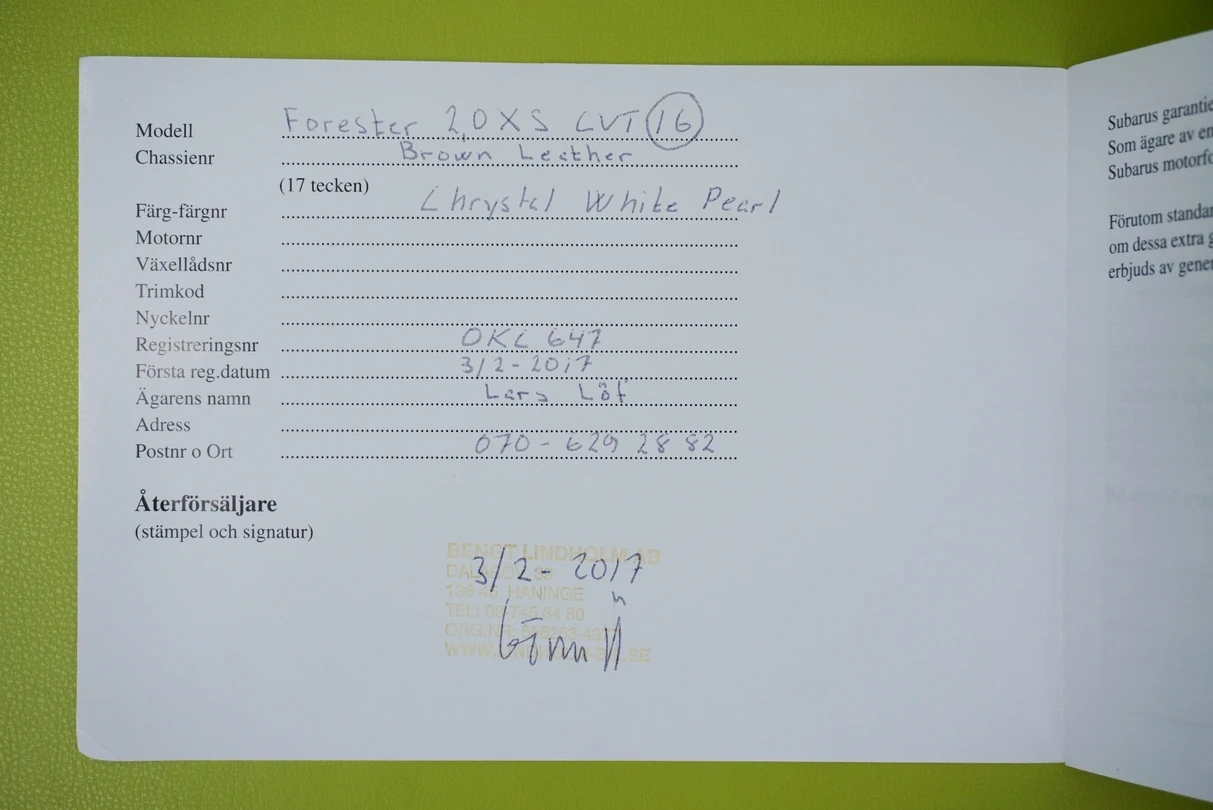 Modell Forester 2,0 XS CVT 16
Chassienr Brown Leather
(17 tecken)
Färg-färgnr Chrystal White Pearl
Motornr
Växellådsnr
Trimkod
Nyckelnr
Registreringsnr OKC 647
Första reg.datum 3/2-2017
Ägarens namn Lars Löf
Adress
Postnr o Ort 070-629 28 82
Återförsäljare
(stämpel och signatur)
BENGT LINDHOLM AB
3/2-2017
HANINGE
TEL: 08-745 34 80
ORG.NR
Subarus garantie
Som ägare av en
Subarus motorfo
Förutom standar
om dessa extra g
erbjuds av gener